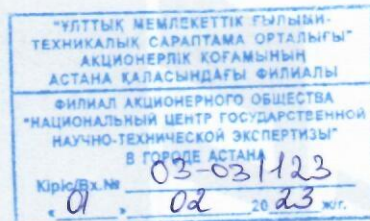 "ҰЛТТЫҚ МЕМЛЕКЕТТІК ҒЫЛЫМИ-
ТЕХНИКАЛЫҚ САРАПТАМА ОРТАЛЫҒЫ"
АКЦИОНЕРЛІК ҚОҒАМЫНЫҢ
АСТАНА ҚАЛАСЫНДАҒЫ ФИЛИАЛЫ
ФИЛИАЛ АКЦИОНЕРНОГО ОБЩЕСТВА
"НАЦИОНАЛЬНЫЙ ЦЕНТР ГОСУДАРСТВЕННОЙ
НАУЧНО-ТЕХНИЧЕСКОЙ ЭКСПЕРТИЗЫ"
В ГОРОДЕ АСТАНА
Кіріс/Вх.№ 03-031123
"01" 02 2023 ж/г.